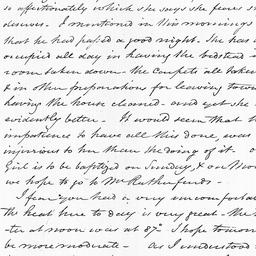 so affectionately which she says she fears she
deserves. I mentioned in this mornings
that he had passed a good night. She has
occupied all day in having the bedstead
room taken down - the carpets all taken
& in other preparations for leaving town
having the house cleaned - and yet she
evidently better - It would seem that
impatience to have all this done, was
injurious to her than the doing of it.
Girl is to be baptized on Sunday, & on Mon
we hope to go to Mr Rutherfurds -
I fear you had a very uncomfortab
the heat here to day is very great - the
-ter at noon was at 87° I hope tomor
be more moderate - As I understood